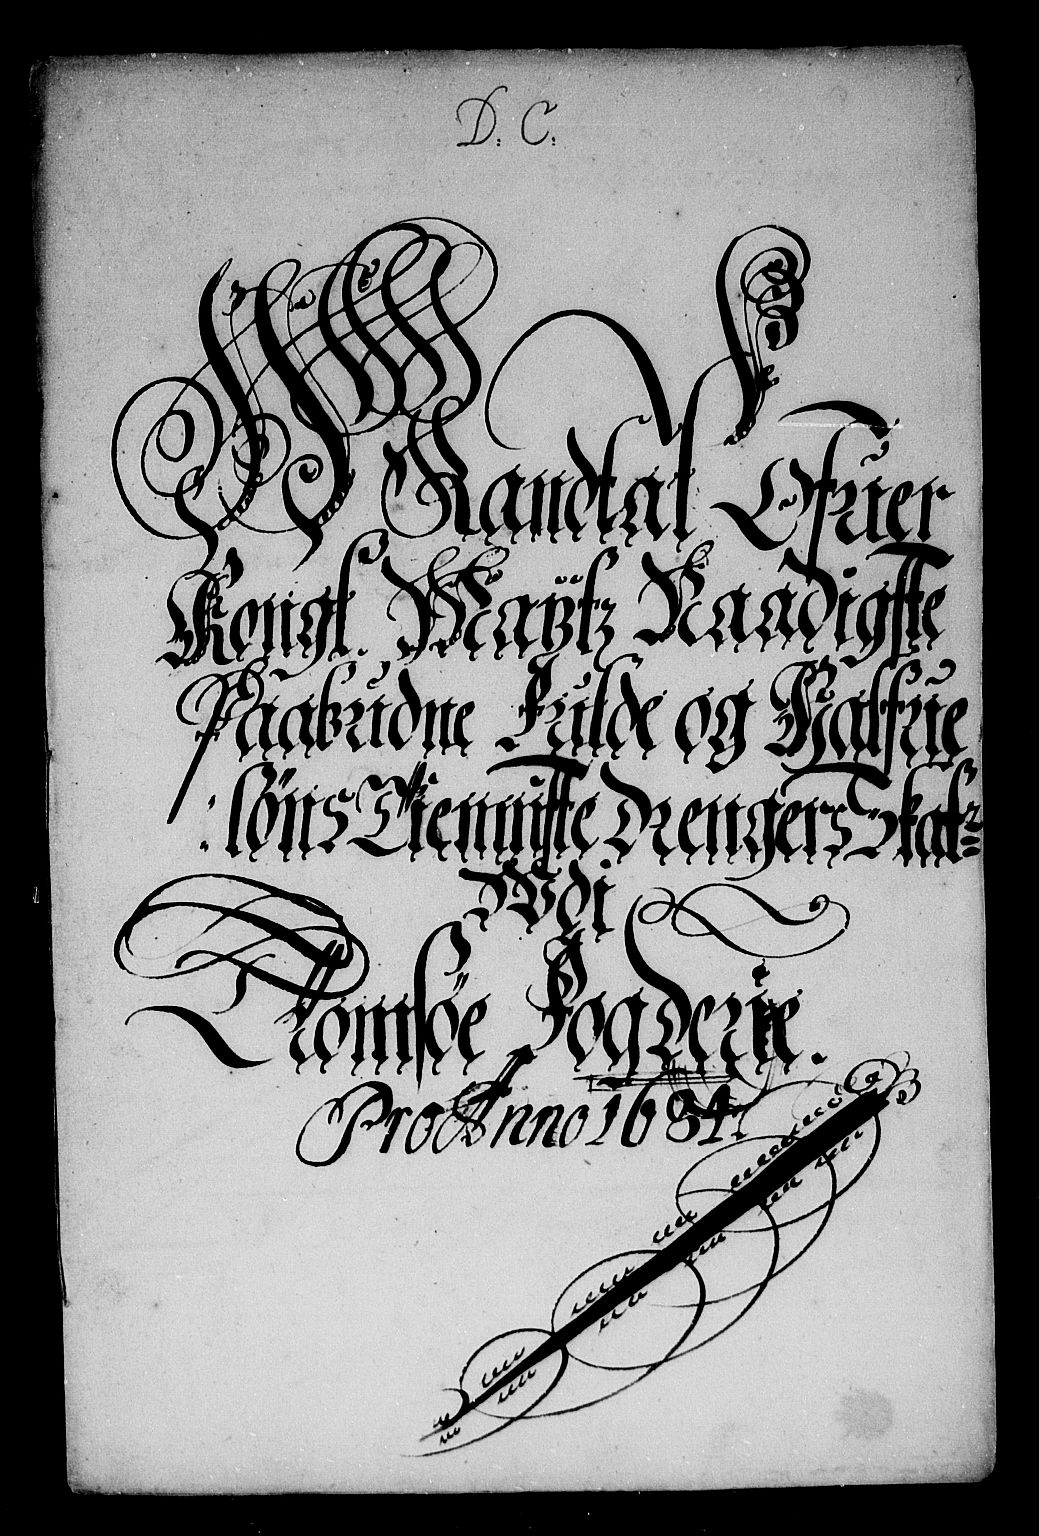 D. C.
Mandtal Ofuer
Kongl. Maÿtz Naadigste
Paabudne Fulde og Halfue
:löns Tienniste drengers Skat
Wdi
Tromsöe Fogderie.
Pro Anno 1684.